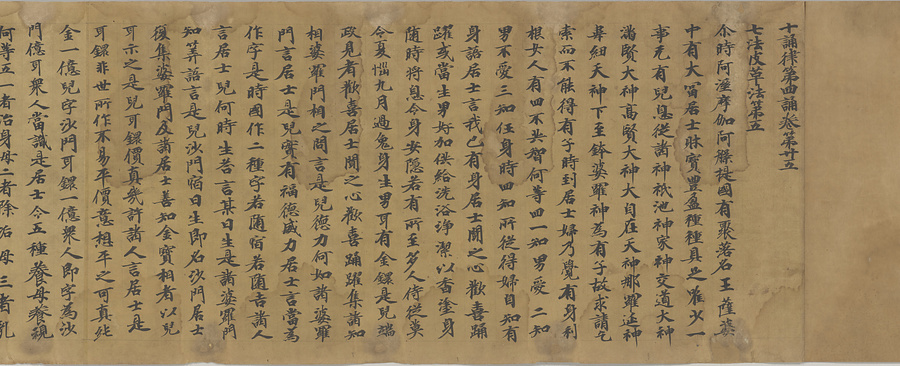 十誦律第四誦卷第廿五
七法皮革法第五
尒時阿濕摩伽阿槃提國有聚落名王薩薄
中有大富居士財寶豐盈種種具足唯少一
事无有兒息從諸神祇池神家神交道大神
滿賢大神高賢大神大自在天神那羅延神
韋紐天神下至鉢婆羅神為有子故求請乞
索而不能得有子時到居士婦乃覺有身利
根女人有四不共智何等四一知男愛二知
男不愛三知任身時四知所從得婦自知有
身語居士言我已有身居士聞之心歡喜踊
躍或當生男好加供給洗浴淨潔以香塗身
隨時將息令身安隱若有所至多人侍從莫
令憂惱九月過兔身生男耳有金鐶是兒端
政見者歡喜居士聞之心歡喜踊躍集諸知
相婆羅門相之問言是兒德力何如諸婆羅
門言居士是兒實有福德威力居士言當為
作字是時國作二種字若隨宿若隨吉諸人
言居士兒何時生荅言某日生是諸婆羅門
知筭語言是兒沙門宿日生即名沙門居士
復集婆羅門及諸居士善知金寶相者以兒
耳示之是兒耳鐶價直幾許諸人言居士是
耳鐶非世所作不易平價意想平之可直純
金一億兒字沙門耳鐶一億眾人即字為沙
門億耳眾人當識是居士令五種養母養視
何等五一者治身母二者除垢母三者乳